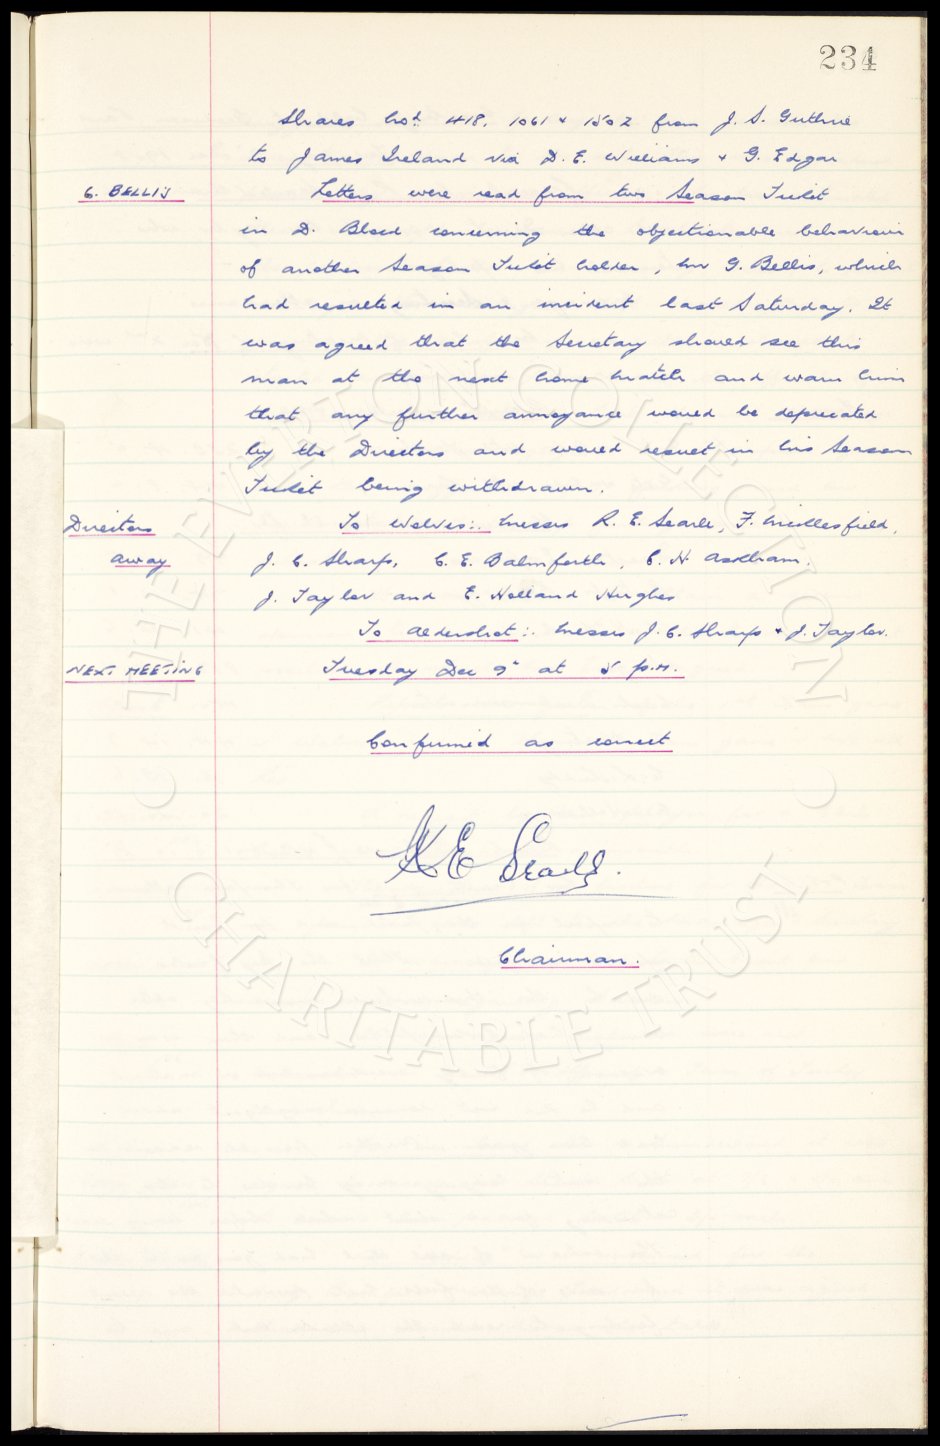 234
Shares Nod. 418, 1061 & 1502 from J. S. Guthrie
to James Ireland via D. E. Williams & G. Edgar
G. BELLIS
Letters were read from two Season Ticket
in D. Block concerning the objectionable behaviour
of another Season Ticket holder, Mr G. Bellis, which
had resulted in an incident last Saturday. It
was agreed that the Secretary should see this
man at the next home match and warn him
that any further annoyance would be deprecated
by the Directors and would result in his Season
Ticket being withdrawn.
Directors
away
To Wolves:- Messrs R. E. Searle, F. Micklesfield,
J. C. Sharp, C. E. Balmforth, C. H. Askham,
J. Taylor and E. Holland Hughes
To Aldershot:- Messrs J. C. Sharp & J. Taylor.
NEXT MEETING
Tuesday Dec 9" at 5 p.m.
Confirmed as correct
R E Searle.
Chairman.
© THE EVERTON COLLECTION
CHARITABLE TRUST